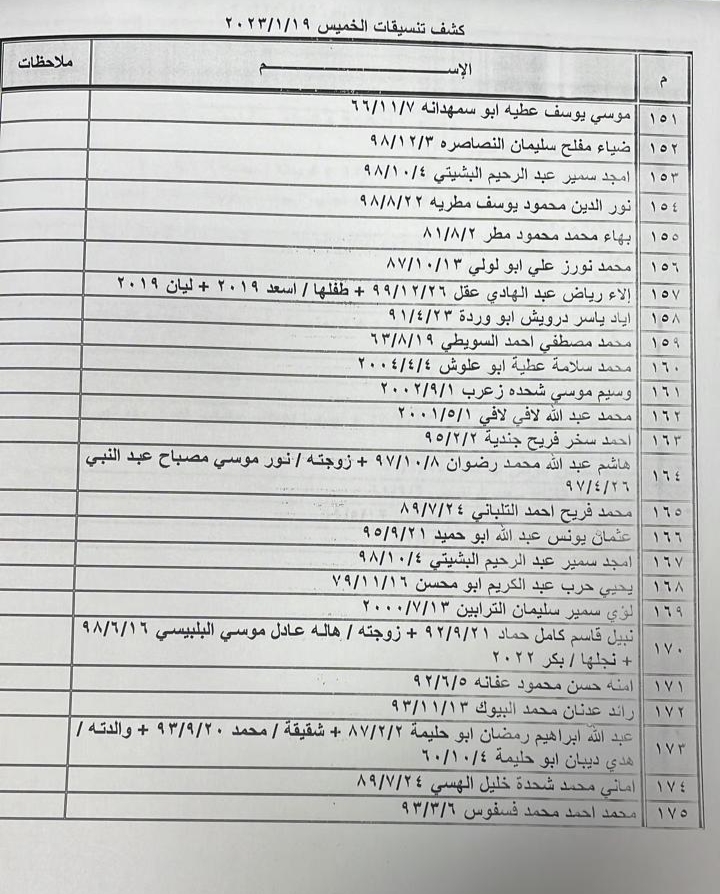 كشف تنسيقات الخميس ٢٠٢٣/١/١٩
م الإســـــــــــــــــــــم ملاحظات
١٥١ موسي يوسف عطيه ابو سمهدانه ٦٦/١١/٧
١٥٢ ضياء مفلح سليمان النصاصره ٩٨/١٢/٣
١٥٣ امجد سمير عبد الرحيم البشيتي ٩٨/١٠/٤
١٥٤ نور الدين محمود يوسف مطريه ٩٨/٨/٢٢
١٥٥ بهاء محمد محمود مطر ٨١/٨/٢
١٥٦ محمد نورز علي ابو لولي ٨٧/١٠/١٣
١٥٧ إلاء رياض عبد الهادي عقل ٩٩/١٢/٢٦ + طفلها / اسعد ٢٠١٩ + ليان ٢٠١٩
١٥٨ اياد ياسر درويش ابو وردة ٩١/٤/٢٣
١٥٩ محمد مصطفي احمد السويطي ٦٣/٨/١٩
١٦٠ محمد سلامة عطية ابو علوش ٢٠٠٤/٤/٤
١٦١ وسيم موسي شحده زعرب ٢٠٠٢/٩/١
١٦٢ محمد عبد الله لافي لافي ٢٠٠١/٥/١
١٦٣ احمد سخر فريح جندية ٩٥/٢/٢
١٦٤ هاشم عبد الله محمد رضوان ٩٧/١٠/٨ + زوجته / نور موسي مصباح عبد النبي
٩٧/٤/٢٦
١٦٥ محمد فريح احمد التلباني ٨٩/٧/٢٤
١٦٦ عثمان يونس عبد الله ابو حميد ٩٥/٩/٢١
١٦٧ امجد سمير عبد الرحيم البشيتي ٩٨/١٠/٤
١٦٨ يحيي حرب عبد الكريم ابو محسن ٧٩/١١/١٦
١٦٩ لؤي سمير سليمان الترابين ٢٠٠٠/٧/١٣
١٧٠ نبيل قاسم كامل حماد ٩٢/٩/٢١ + زوجته / هاله عادل موسي البلبيسي ٩٨/٦/١٦
+ نجلها / بكر ٢٠٢٢
١٧١ امنه حسن محمود عفانه ٩٢/٦/٥
١٧٢ رائد عدنان محمد البيوك ٩٣/١١/١٣
١٧٣ عبد الله ابراهيم رمضان ابو حليمة ٨٧/٢/٢ + شقيقة / محمد ٩٣/٩/٢٠ + والدته /
هدي ديبان ابو حليمة ٦٠/١٠/٤
١٧٤ اماني محمد شحدة خليل الهسي ٨٩/٧/٢٤
١٧٥ محمد احمد محمد فسفوس ٩٣/٣/٦